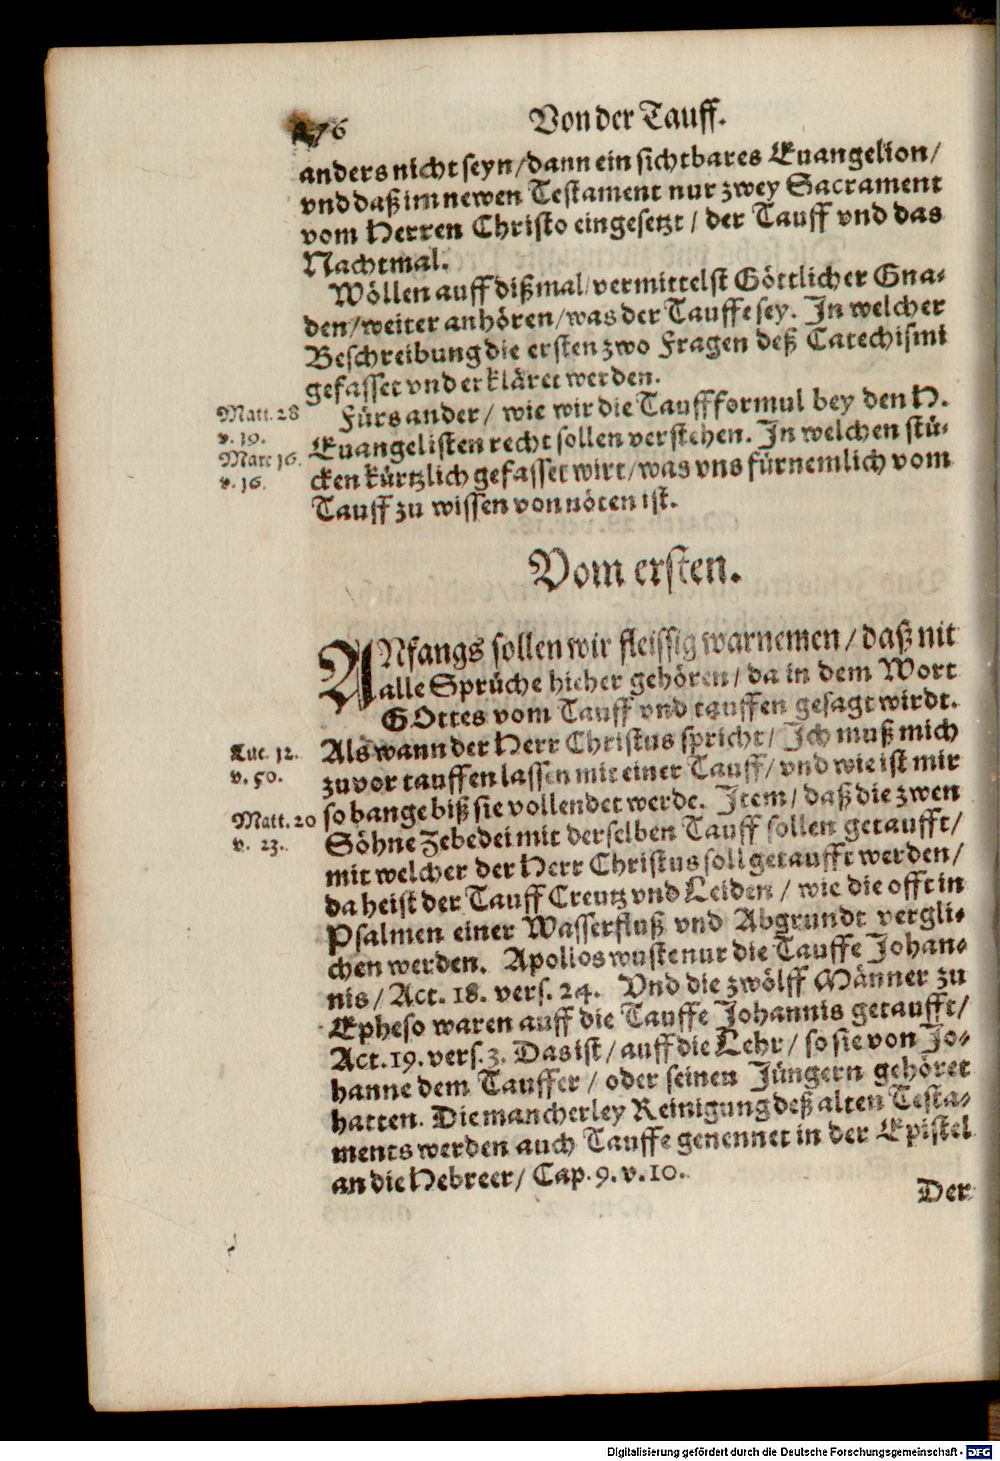 76 Von der Tauff.
anders nicht seyn/dann ein sichtbares Euangelion/
vnd daß im newen Testament nur zwey Sacrament
vom Herren Christo eingesetzt / der Tauff vnd das
Nachtmal.
Wöllen auff dißmal/vermittelst Göttlicher Gna-
den/weiter anhören/was der Tauffe sey. In welcher
Beschreibung die ersten zwo Fragen deß Catechismi
gefasset vnd erkläret werden.
Matt. 28
v. 19.
Marc 16.
v. 16.
Fürs ander/ wie wir die Tauffformul bey den H.
Euangelisten recht sollen verstehen. In welchen stü-
cken kürtzlich gefasset wirt/was vns fürnemlich vom
Tauff zu wissen von nöten ist.
Vom ersten.
ANfangs sollen wir fleissig warnemen/daß nit
alle Sprüche hieher gehören/ da in dem Wort
GOttes vom Tauff vnd tauffen gesagt wirdt.
Luc. 12.
v. 50.
Als wann der Herr Christus spricht/ Ich muß mich
zuvor tauffen lassen mit einer Tauff/ vnd wie ist mir
so bange biß sie vollendet werde. Item/ daß die zwen
Matt. 20
v. 23.
Söhne Zebedei mit derselben Tauff sollen getaufft/
mit welcher der Herr Christus soll getaufft werden/
da heist der Tauff Creutz vnd Leiden / wie die offt in
Psalmen einer Wasserfluß vnd Abgrundt vergli-
chen werden. Apollos wuste nur die Tauffe Johan-
nis/ Act. 18. vers. 24. Vnd die zwölff Männer zu
Epheso waren auff die Tauffe Johannis getaufft/
Act. 19. vers. 3. Das ist/ auff die Lehr/ so sie von Jo-
hanne dem Tauffer/ oder seinen Jüngern gehöret
hatten. Die mancherley Reinigung deß alten Testa-
ments werden auch Tauffe genennet in der Epistel
an die Hebreer/ Cap. 9. v. 10.
Der
Digitalisierung gefördert durch die Deutsche Forschungsgemeinschaft - DFG